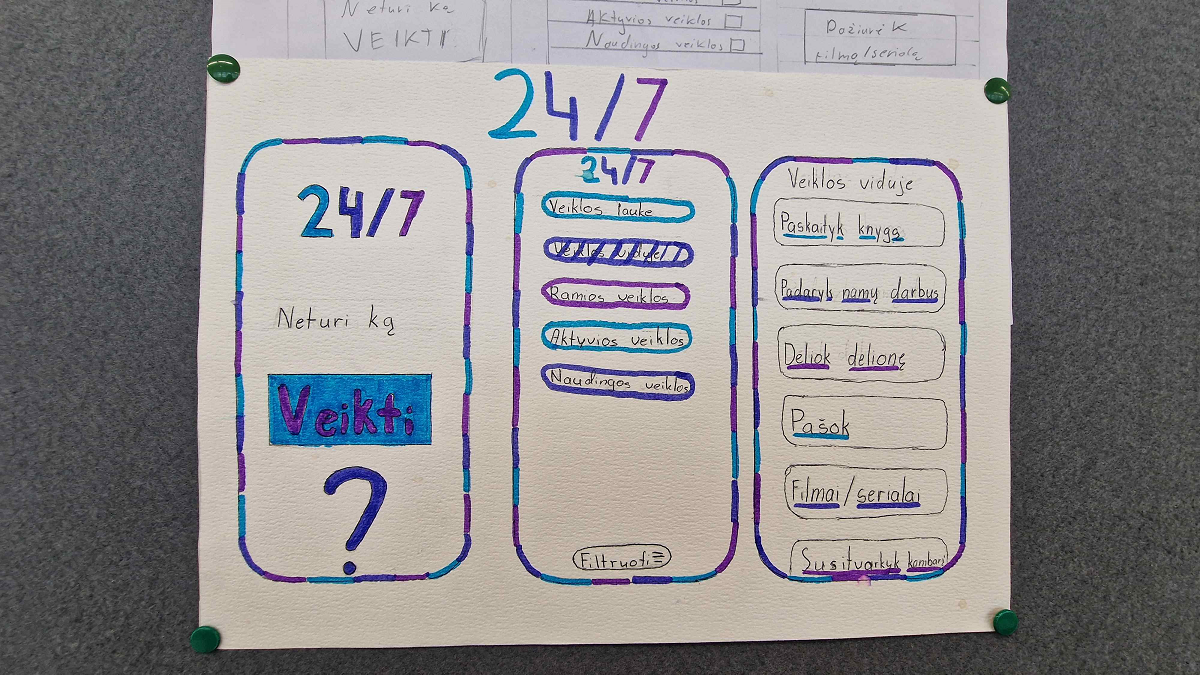 Neturi ką
VEIKTI
Aktyvios veiklos
Naudingos veiklos
Požiurėk
filmą/serialą
24/7
24/7
Neturi ką
Veikti
?
24/7
Veiklos lauke
Veiklos viduje
Ramios veiklos
Aktyvios veiklos
Naudingos veiklos
Filtruoti
Veiklos viduje
Paskaityk knygą
Padaryk namų darbus
Dėliok dėlionę
Pašok
Filmai/serialai
Susitvarkyk kambarį